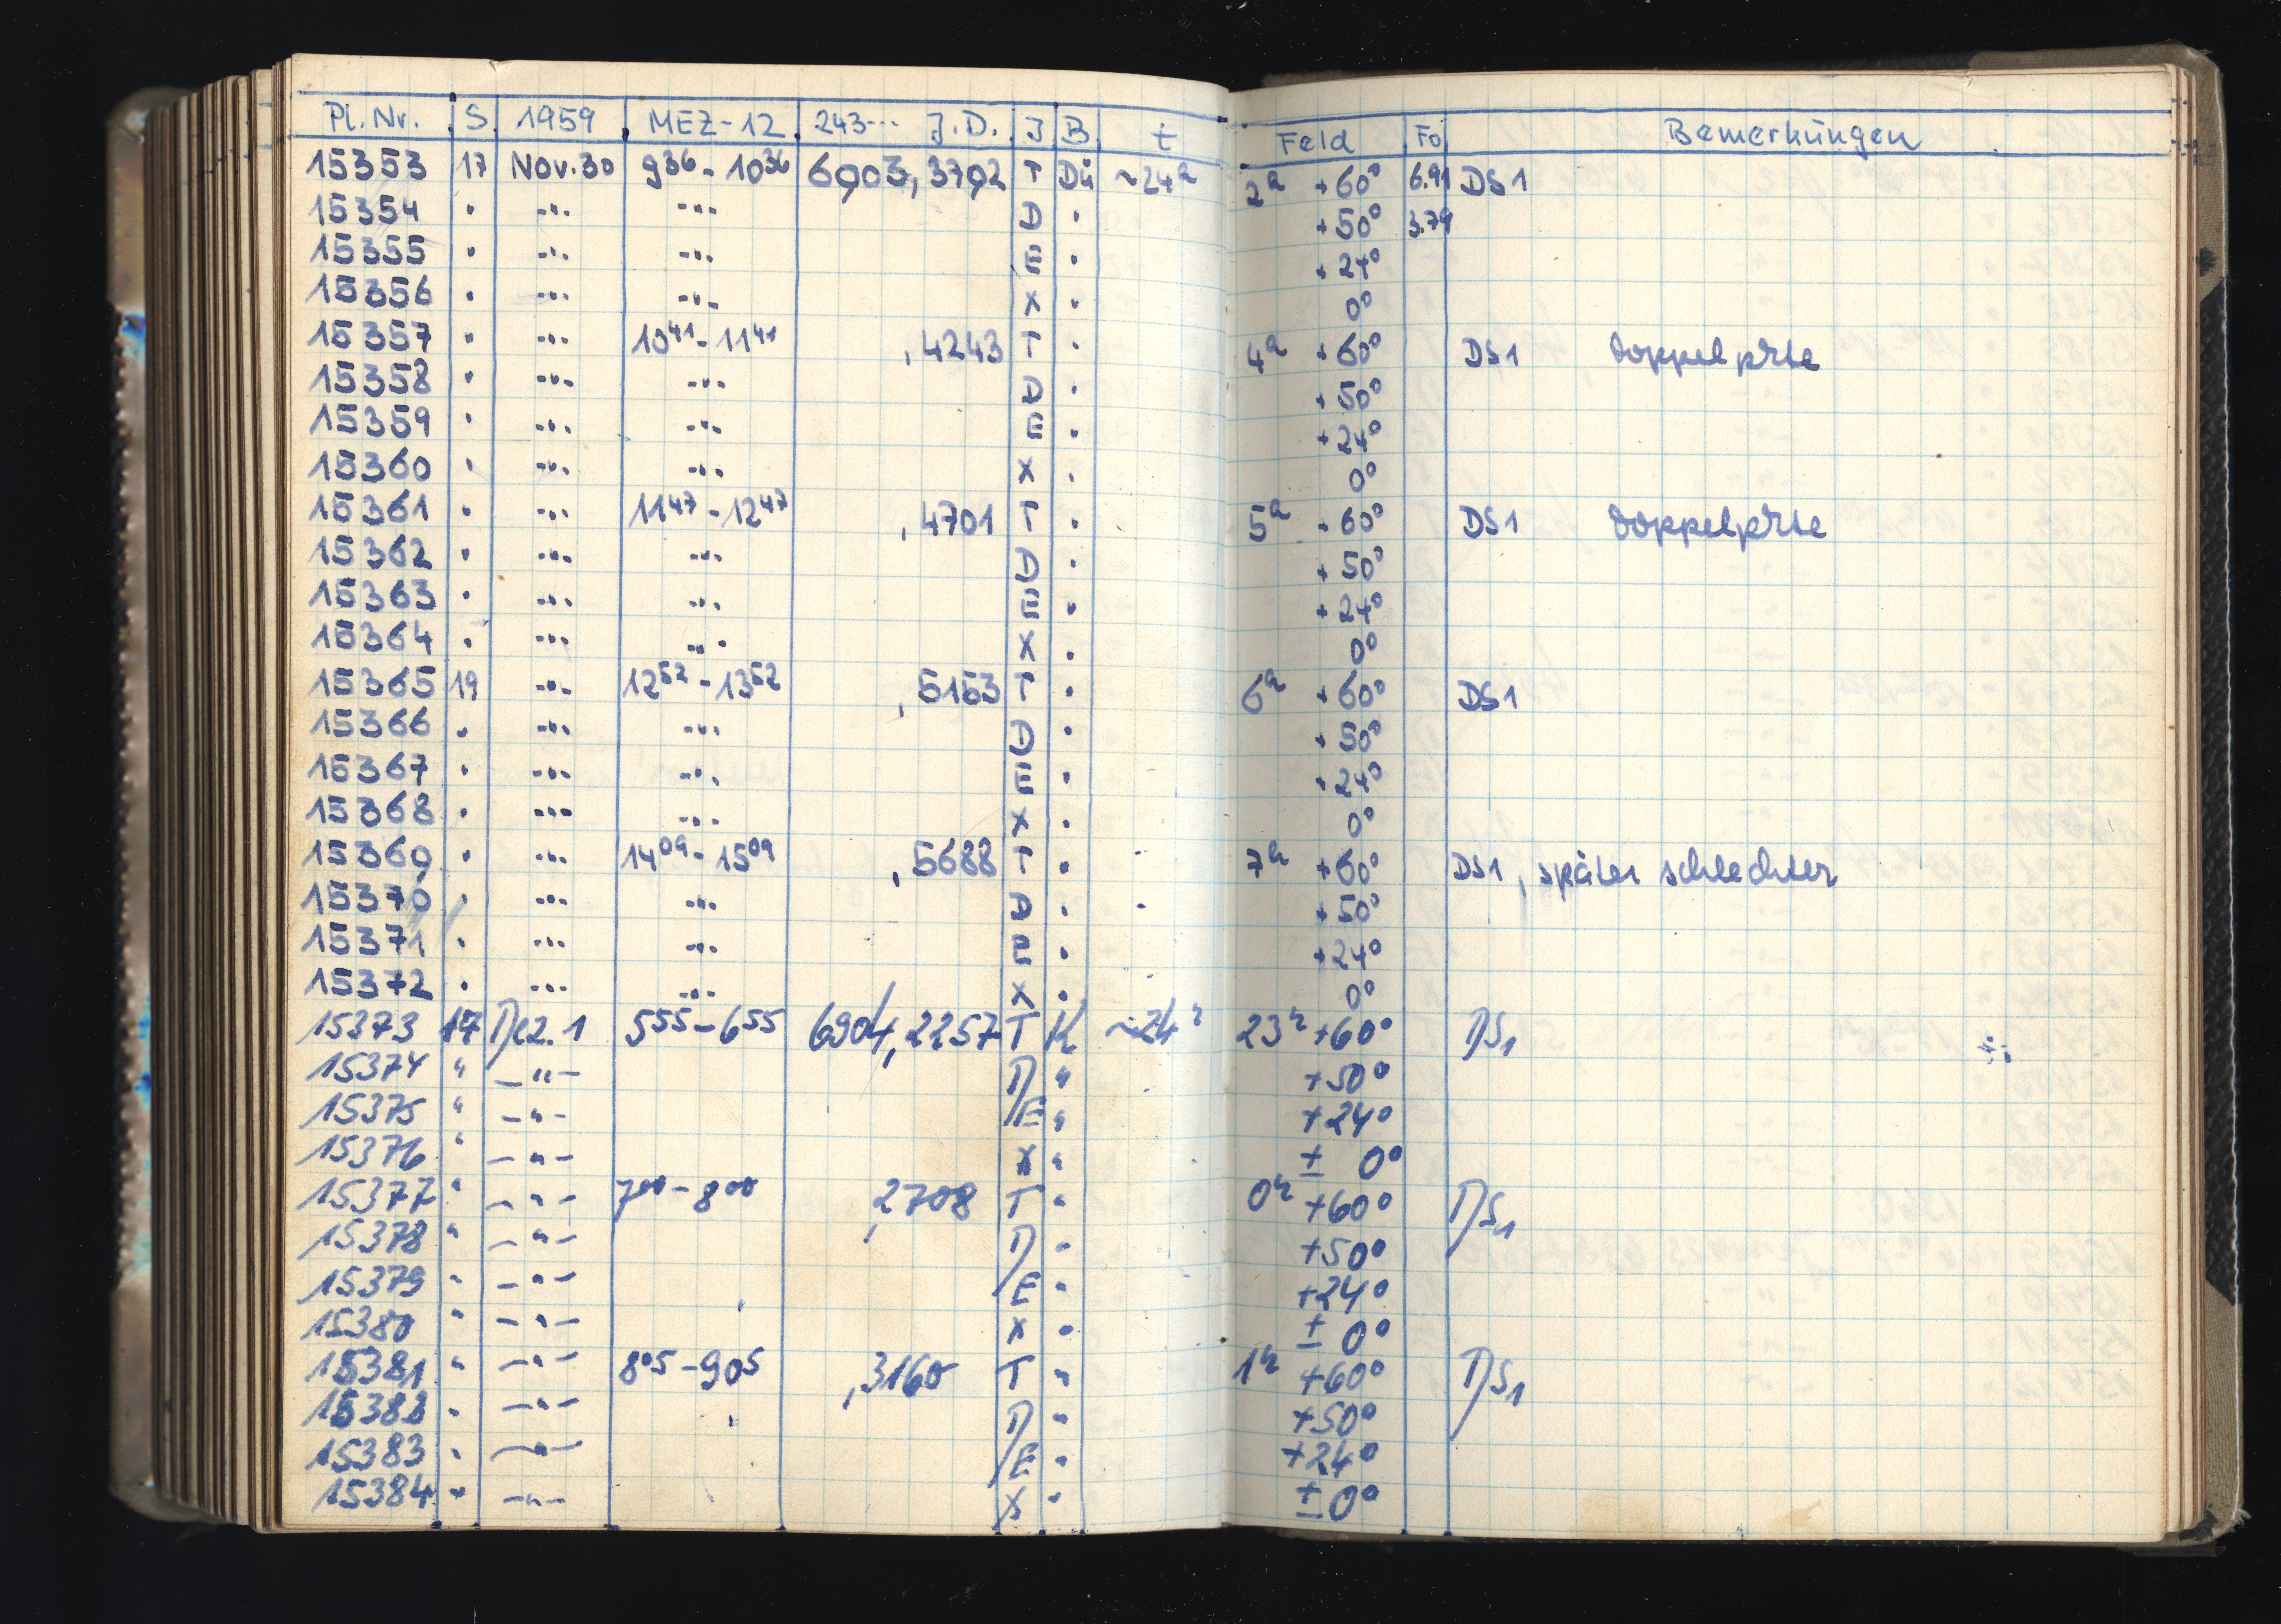 Pl. Nr. S 1959 MEZ-12 243... J.D. J B t Feld Fo Bemerkungen
15353 17 Nov. 30 9 36 - 10 36 6903,3792 T Dü ~24h 2h +60° 6.91 DS1
15354 " -"- -"- D " +50° 3.79
15355 " -"- -"- E " +24°
15356 " -"- -"- X " 0°
15357 " -"- 10 41 - 11 41 ,4243 T " 4h +60° DS1 Doppelplatte
15358 " -"- -"- D " +50°
15359 " -"- -"- E " +24°
15360 " -"- -"- X " 0°
15361 " -"- 11 47 - 12 47 ,4701 T " 5h +60° DS1
15362 " -"- -"- D " +50°
15363 " -"- -"- E " +24°
15364 " -"- -"- X " 0°
15365 19 -"- 12 52 - 13 52 ,5153 T " 6h +60° DS1
15366 " -"- -"- D " +50°
15367 " -"- -"- E " +24°
15368 " -"- -"- X " 0°
15369 " -"- 14 09 - 15 09 ,5688 T " 7h +60° DS1, später schlechter
15370 " -"- -"- D " +50°
15371 " -"- -"- E " +24°
15372 " -"- -"- X " 0°
15373 17 Dez. 1 5 55 - 6 55 6904,2257 T K ~24h 23h +60° DS1
15374 " -"- D " +50°
15375 " -"- E " +24°
15376 " -"- X " ± 0°
15377 " -"- 7 00 - 8 00 ,2708 T " 0h +60° DS1
15378 " -"- D " +50°
15379 " -"- E " +24°
15380 " -"- X " ± 0°
15381 " -"- 8 05 - 9 05 ,3160 T " 1h +60° DS1
15382 " -"- D " +50°
15383 " -"- E " +24°
15384 " -"- X " ± 0°